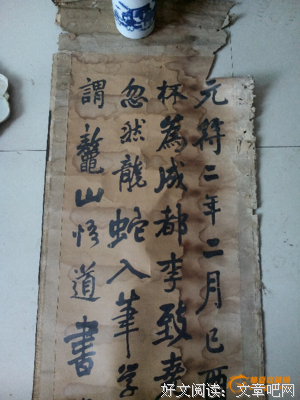 元符二年二月己酉
杯為成都李致堯
忽然龍蛇入筆学
謂鼇山悟道書
好文阅读：文章吧网